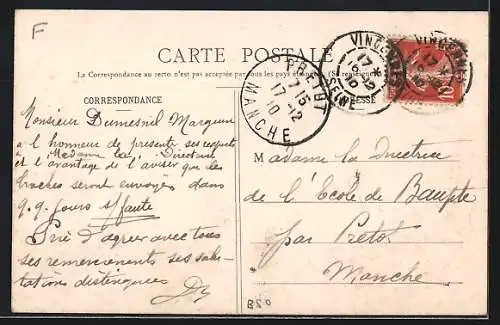 F
CARTE POSTALE
La Correspondance au recto n'est pas acceptée par tous les pays étrangers (Se renseigner)
CORRESPONDANCE
ADRESSE
VINCENNES
17 H
16-12
10
SEINE
PRETOT
7 15
17-12
10
MANCHE
10
Monsieur Dumesnil
a l'honneur de présenter ses respects
à Madame la Directrice
et l'avantage de l'aviser que les
broches seront envoyées dans
q.q. jours s/faute
Prié d'agréer avec tous
ses remerciements ses salu-
tations distinguées
Madame la Directrice
de l'École de Baupte
par Pretot
Manche
B50